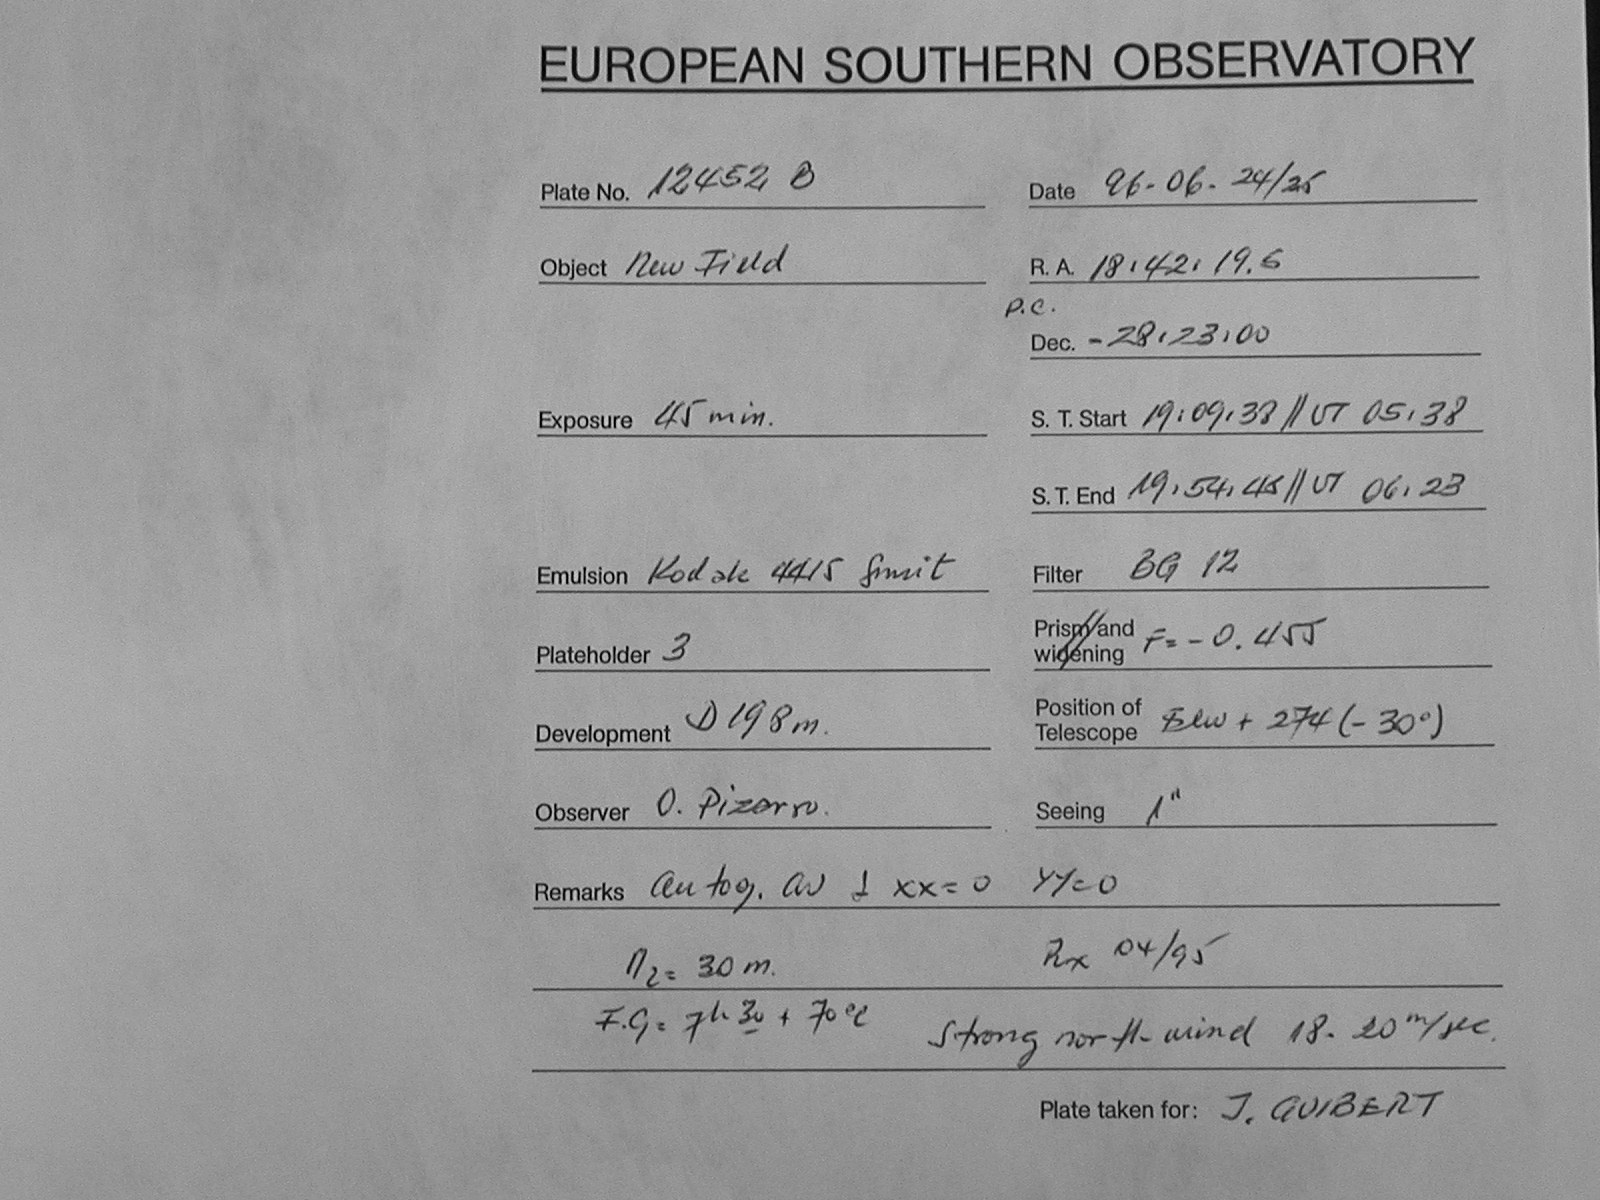 EUROPEAN SOUTHERN OBSERVATORY
Plate No. 12452 B
Date 96-06-24/25
Object New Field
R. A. 18:42:19.6
P.C.
Dec. -28:23:00
Exposure 45 min.
S. T. Start 19:09:38 // UT 05:38
S. T. End 19:54:45 // UT 06:23
Emulsion Kodak 4415
Filter BG 12
Plateholder 3
Prism and widening F= -0.455
Development D 19 8m.
Position of Telescope + 274 (-30°)
Observer O. Pizarro.
Seeing 1"
Remarks autog. xx=0 YY=0
= 30 m. 04/95
F.G= 7h 30 + 70°C Strong north wind 18-20 m/sec.
Plate taken for: J. GUIBERT